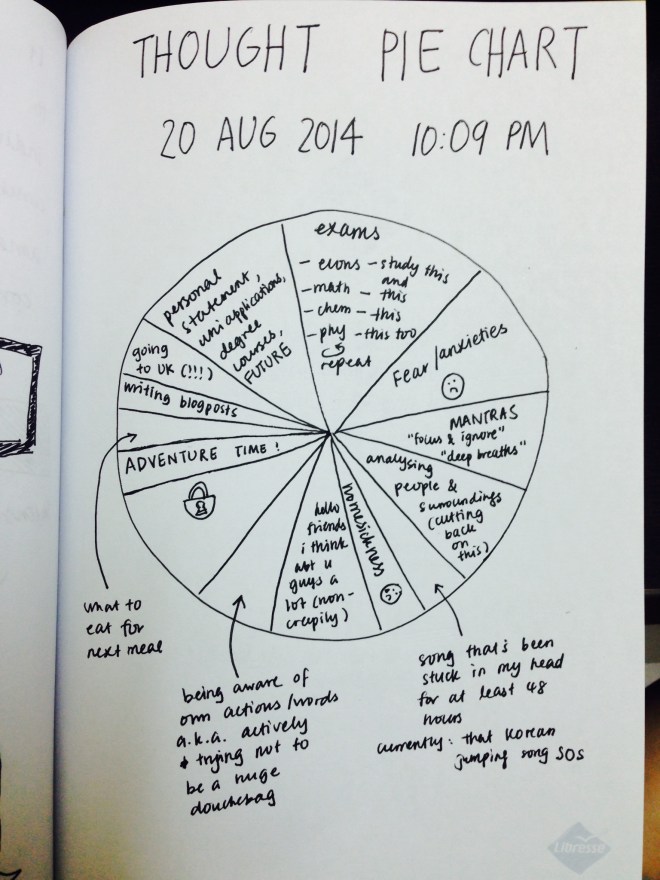 THOUGHT PIE CHART
20 AUG 2014 10:09 PM
exams
- econs - study this
and
- math - this
- chem - this
- phy - this too
repeat
Fear/anxieties
MANTRAS
"focus & ignore"
"deep breaths"
analysing
people &
surroundings
(cutting
back
on
this)
song that's been
stuck in my head
for at least 48
hours
currently: that Korean
jumping song SOS
homesickness
hello
friends
i think
abt u
guys a
lot (non-
creepily)
being aware of
own actions/words
a.k.a. actively
trying not to
be a huge
douchebag
ADVENTURE TIME!
what to
eat for
next meal
writing blogposts
going
to UK (!!!)
personal
statement,
uni applications,
degree
courses,
FUTURE
Libresse